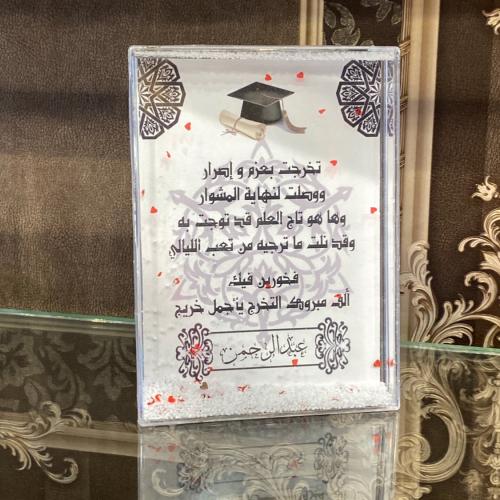 تخرجت بعزم و إصرار
ووصلت لنهاية المشوار
وها هو تاج العلم قد توجت به
وقد نلت ما ترجيه من تعب الليالي
فخورين فيك
ألف مبروك التخرج يأجمل خريج
عبدالرحمن